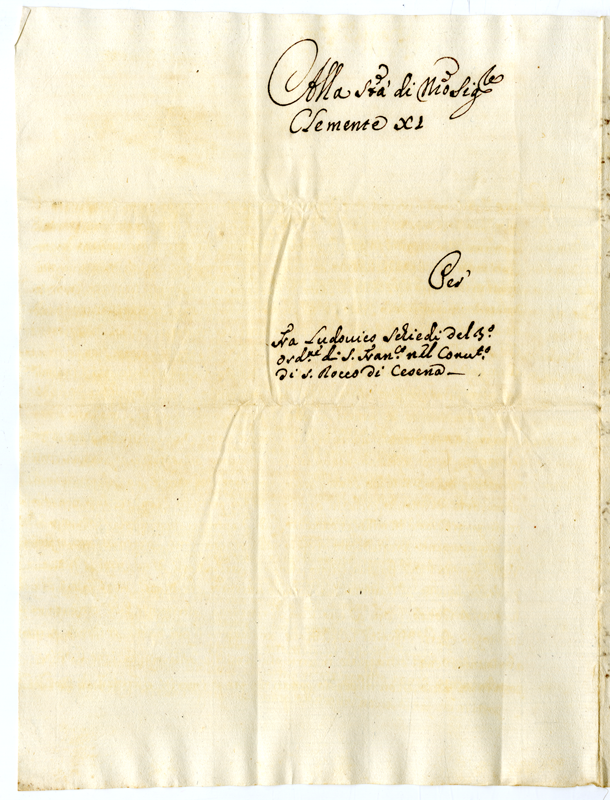 Alla S.tà di N.ro Sig.re
Clemente XI
Per
Fra Ludovico Schiedi del 3.o
ord.ne di S. Fran.co nel Conu.to
di S. Rocco di Cesena